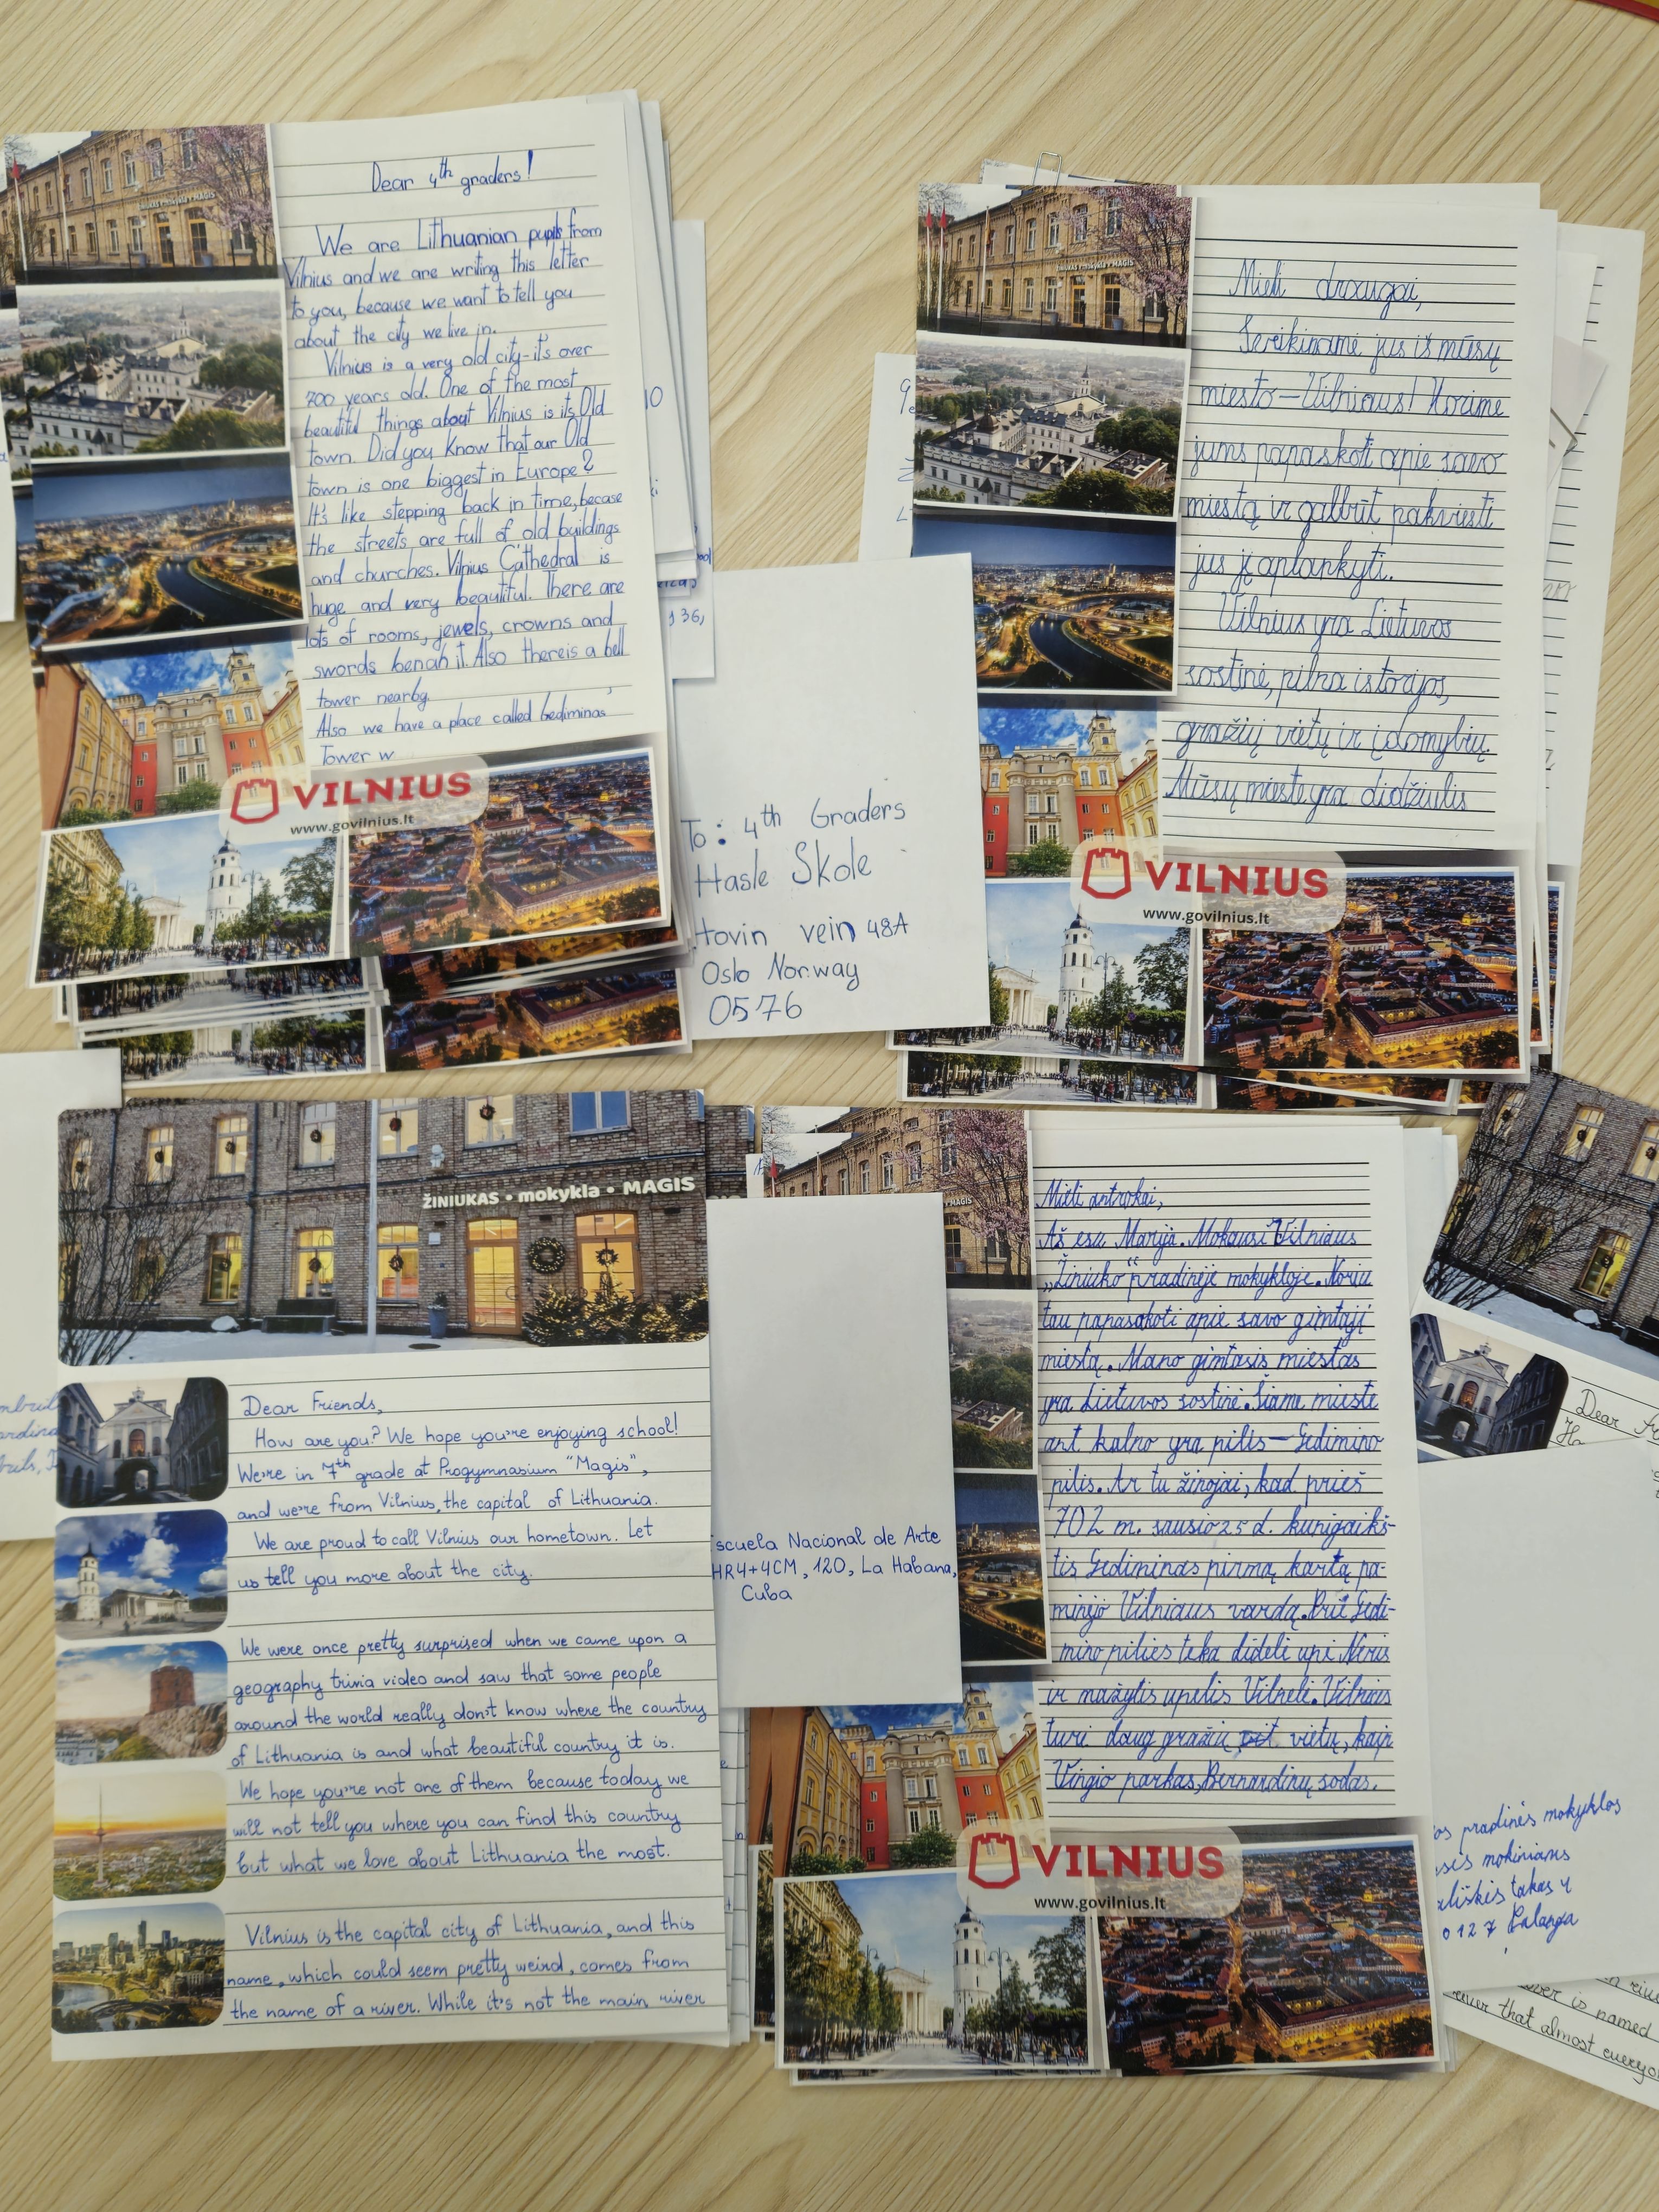 ŽINIUKAS • mokykla • MAGIS
Dear 4th graders!
We are Lithuanian pupils from
Vilnius and we are writing this letter
to you, because we want to tell you
about the city we live in.
Vilnius is a very old city-it's over
700 years old. One of the most
beautiful things about Vilnius is its Old
town. Did you know that our Old
town is one biggest in Europe?
It's like stepping back in time, becase
the streets are full of old buildings
and churches. Vilnius Cathedral is
huge and very beautiful. There are
lots of rooms, jewels, crowns and
swords benah it. Also there is a bell
tower nearby.
Also we have a place called Gediminas'
Tower w
VILNIUS
www.govilnius.lt
10
136,
To: 4th Graders
Hasle Skole
tovin vein 48A
Oslo Norway
0576
ŽINIUKAS • mokykla • MAGIS
Mieli draugai,
Sveikiname jus iš mūsų
miesto-Vilniaus! Norime
jums papaskoti apie savo
miestą ir galbūt pakviesti
jus jį aplankyti.
Vilnius yra Lietuvos
sostinė, pilna istorijos,
gražių vietų ir įdomybių.
Mūsų mieste yra didžiulis
VILNIUS
www.govilnius.lt
ŽINIUKAS • mokykla • MAGIS
Dear Friends,
How are you? We hope you're enjoying school!
We're in 7th grade at Progymnasium "Magis",
and we're from Vilnius, the capital of Lithuania.
We are proud to call Vilnius our hometown. Let
us tell you more about the city.
We were once pretty surprised when we came upon a
geography trivia video and saw that some people
around the world really don't know where the country
of Lithuania is and what beautiful country it is.
We hope you're not one of them because today we
will not tell you where you can find this country
but what we love about Lithuania the most.
Vilnius is the capital city of Lithuania, and this
name, which could seem pretty weird, comes from
the name of a river. While it's not the main river
scuela Nacional de Arte
HR4+4CM, 120, La Habana,
Cuba
MAGIS
Mieli antrokai,
Aš esu Marija. Mokausi Vilniaus
„Žiniuko“ pradinėje mokykloje. Noriu
tau papasakoti apie savo gimtąjį
miestą. Mano gimtasis miestas
yra Lietuvos sostinė. Šiame mieste
ant kalno yra pilis-Gedimino
pilis. Ar tu žinojai, kad prieš
702 m. sausio 25 d. kunigaikš-
tis Gediminas pirmą kartą pa-
minėjo Vilniaus vardą. Prie Gedi-
mino pilies teka dideli upė Neris
ir mažytis upelis Vilnelė. Vilnius
turi daug gražių vietų, kaip
Vingio parkas, Bernardinų sodas.
VILNIUS
www.govilnius.lt
Dear
os pradinės mokyklos
mokiniams
takas 4
0127 Palanga
is named
that almost